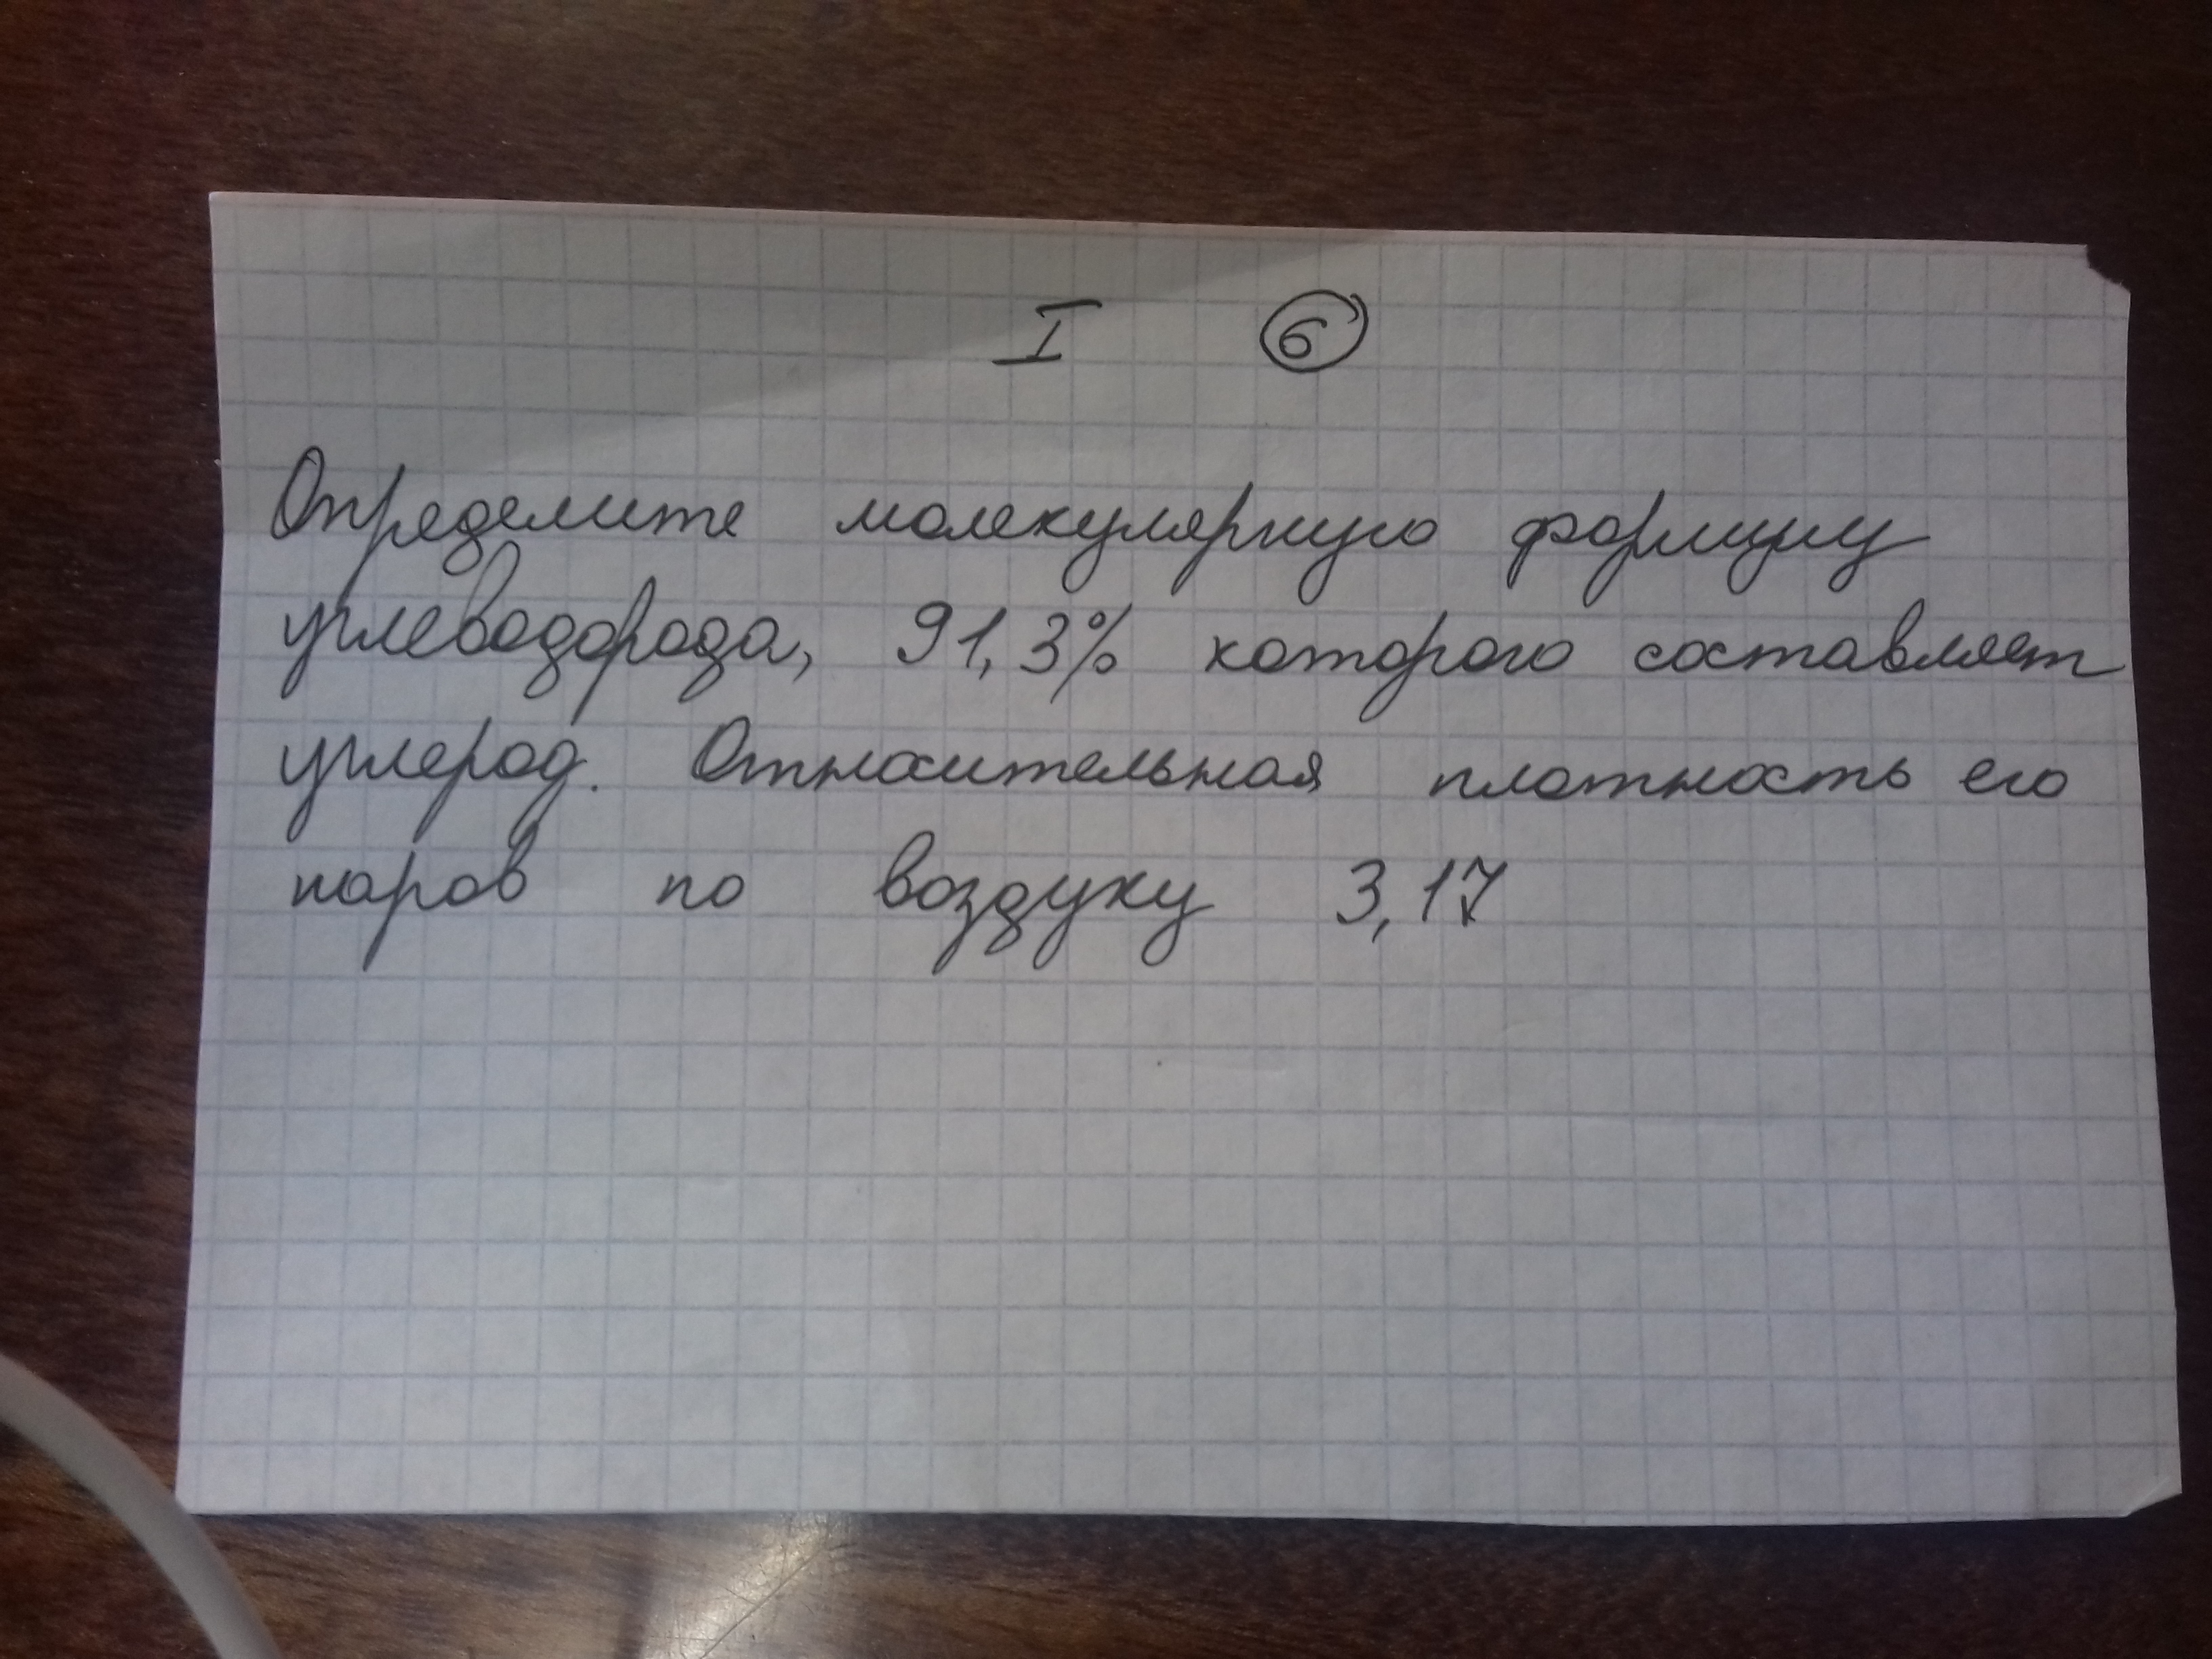 I 6
Определите молекулярную формулу
углеводорода, 91,3% которого составляет
углерод. Относительная плотность его
паров по воздуху 3,17